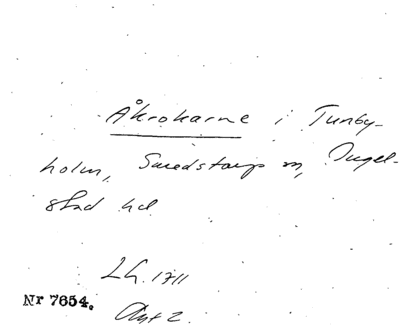 Åkrokarne i Tunby-
holm, Smedstorp sn, Ingel-
stad hd
LG. 1711
Nr 7654.
Akt 2.